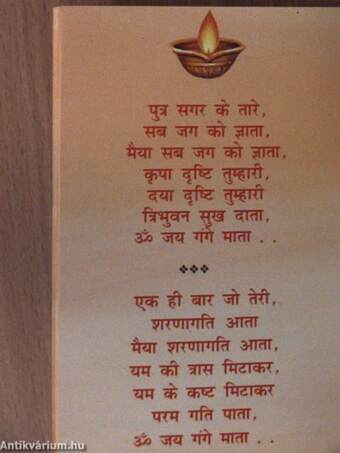 पुत्र सगर के तारे,
सब जग को ज्ञाता,
मैया सब जग को ज्ञाता,
कृपा दृष्टि तुम्हारी
दया दृष्टि तुम्हारी
त्रिभुवन सुख दाता,
ॐ जय गंगे माता . .
एक ही बार जो तेरी,
शरणागति आता
मैया शरणागति आता,
यम की त्रास मिटाकर,
यम के कष्ट मिटाकर
परम गति पाता,
ॐ जय गंगे माता . .
Antikvárium.hu